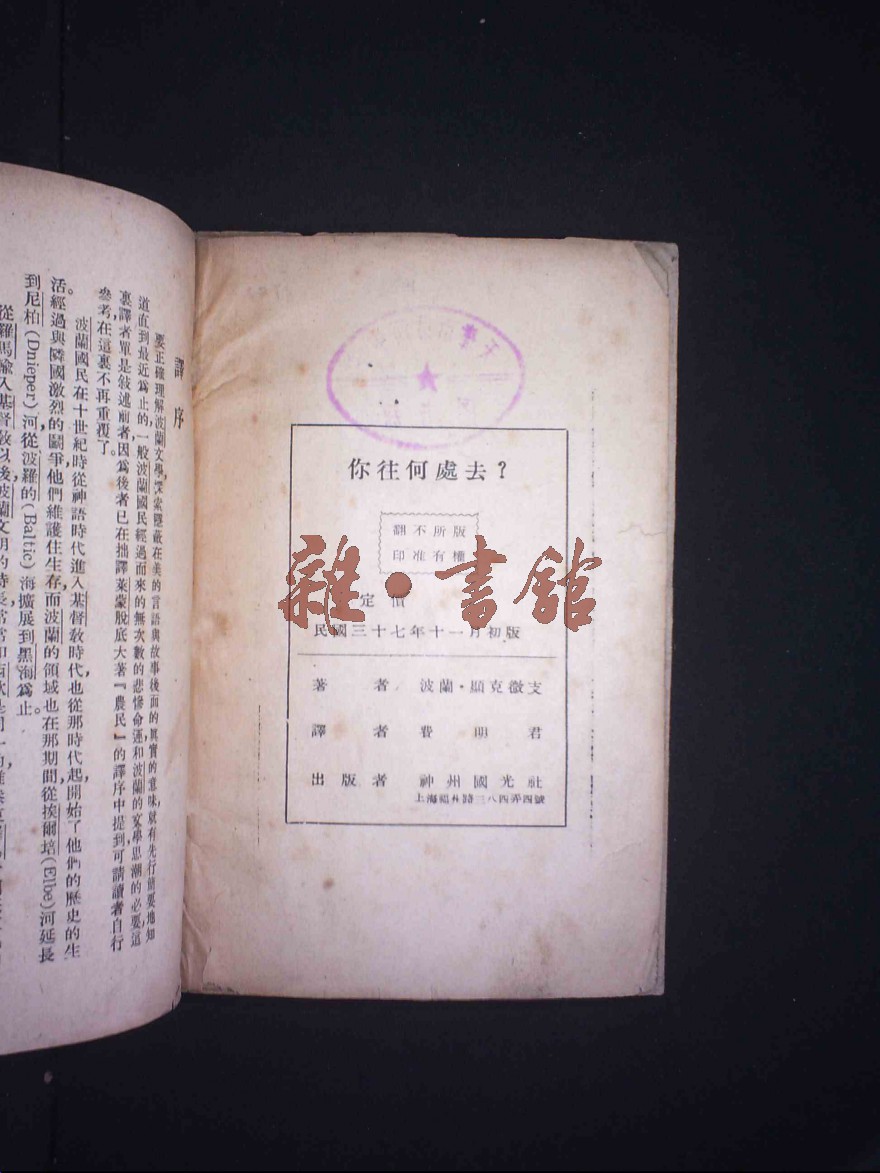 你往何處去？
版權所有
不准翻印
雜·書館
定價
民國三十七年十一月初版
著者 波蘭·顯克微支
譯者 費明君
出版者 神州國光社
上海福州路三八四弄四號
譯序
要正確理解波蘭文學，探索隱蔽在美的言語與故事後面的眞實的意味，就有先行簡要地知
道直到最近爲止的，一般波蘭國民經過而來的無次數的悲慘命運和波蘭的文學思潮的必要。這
裏譯者單是敍述前者，因爲後者已在拙譯萊蒙脫底大著『農民』的譯序中提到，可請讀者自行
參考，在這裏不再重覆了。
波蘭國民在十世紀時從神語時代進入基督教時代，也從那時代起，開始了他們的歷史的生
活。經過與隣國激烈的鬪爭，他們維護住生存，而波蘭的領域也在那期間，從埃爾培(Elbe)河延長
到尼柏(Dnieper)河，從波羅的(Baltic)海擴展到黑海爲止。
從羅馬輸入基督教以後，波蘭文明的